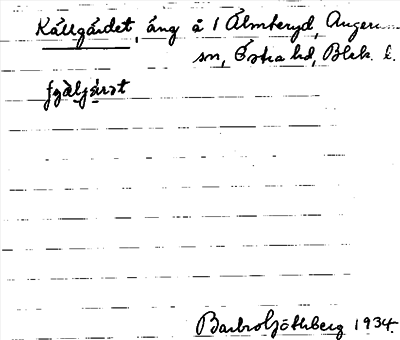 Källgärdet, äng å 1 Älmteryd, Augerums
sn, Östra hd, Blek. l.
Barbro Göthberg 1934.